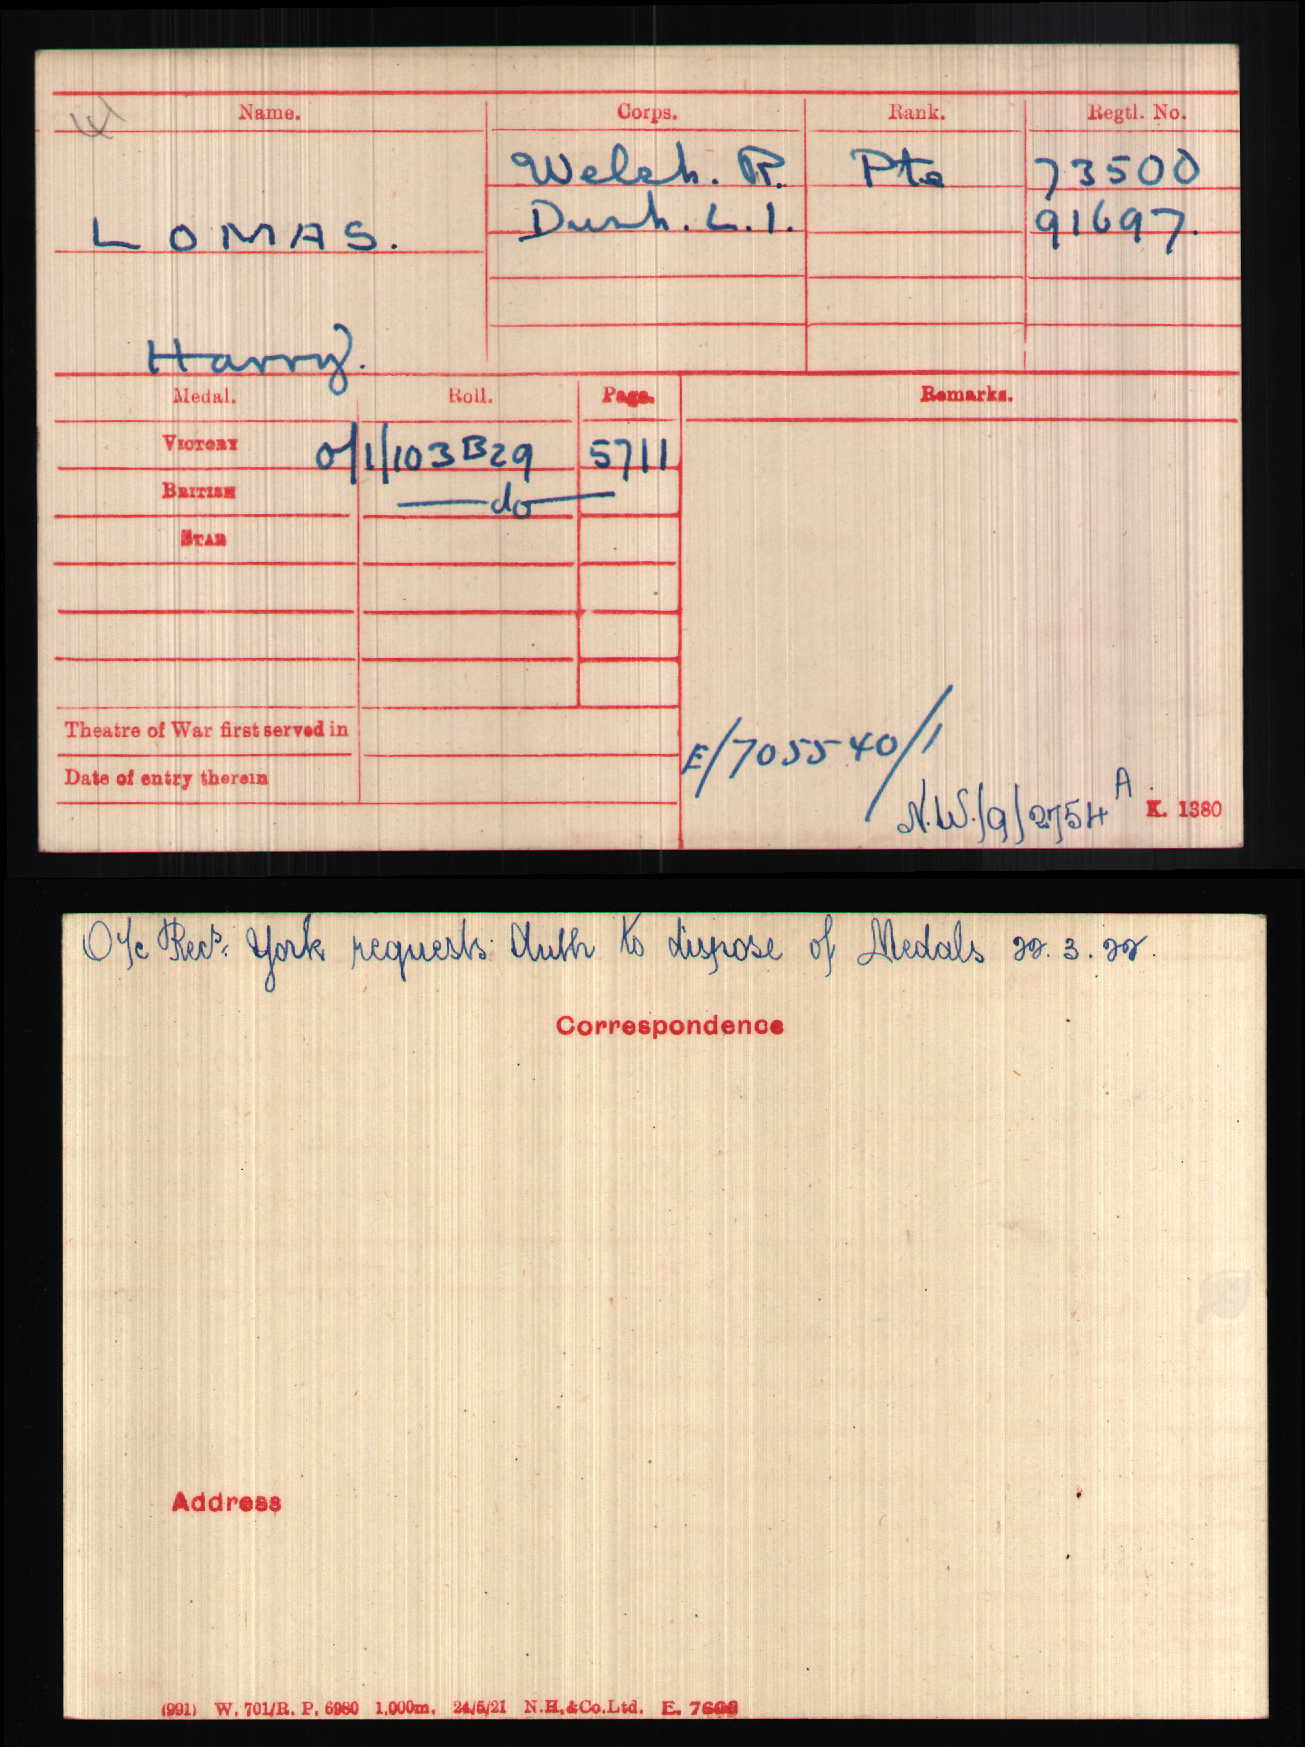 Name. Corps. Rank. Regtl. No.
Welsh. R. Pte 73500
LOMAS. Durh. L.I. 91697.
Harry.
Medal. Roll. Page. Remarks.
VICTORY O/1/103B29 5711
BRITISH —do—
STAR
Theatre of War first served in
E/705540/1
Date of entry therein
N.W./9/2754 A K. 1380
O/c Recs. York requests Auth to dispose of Medals 22.3.22.
Correspondence
Address
(991) W. 701/R. P. 6980 1,000m. 24/5/21 N.H.&Co.Ltd.